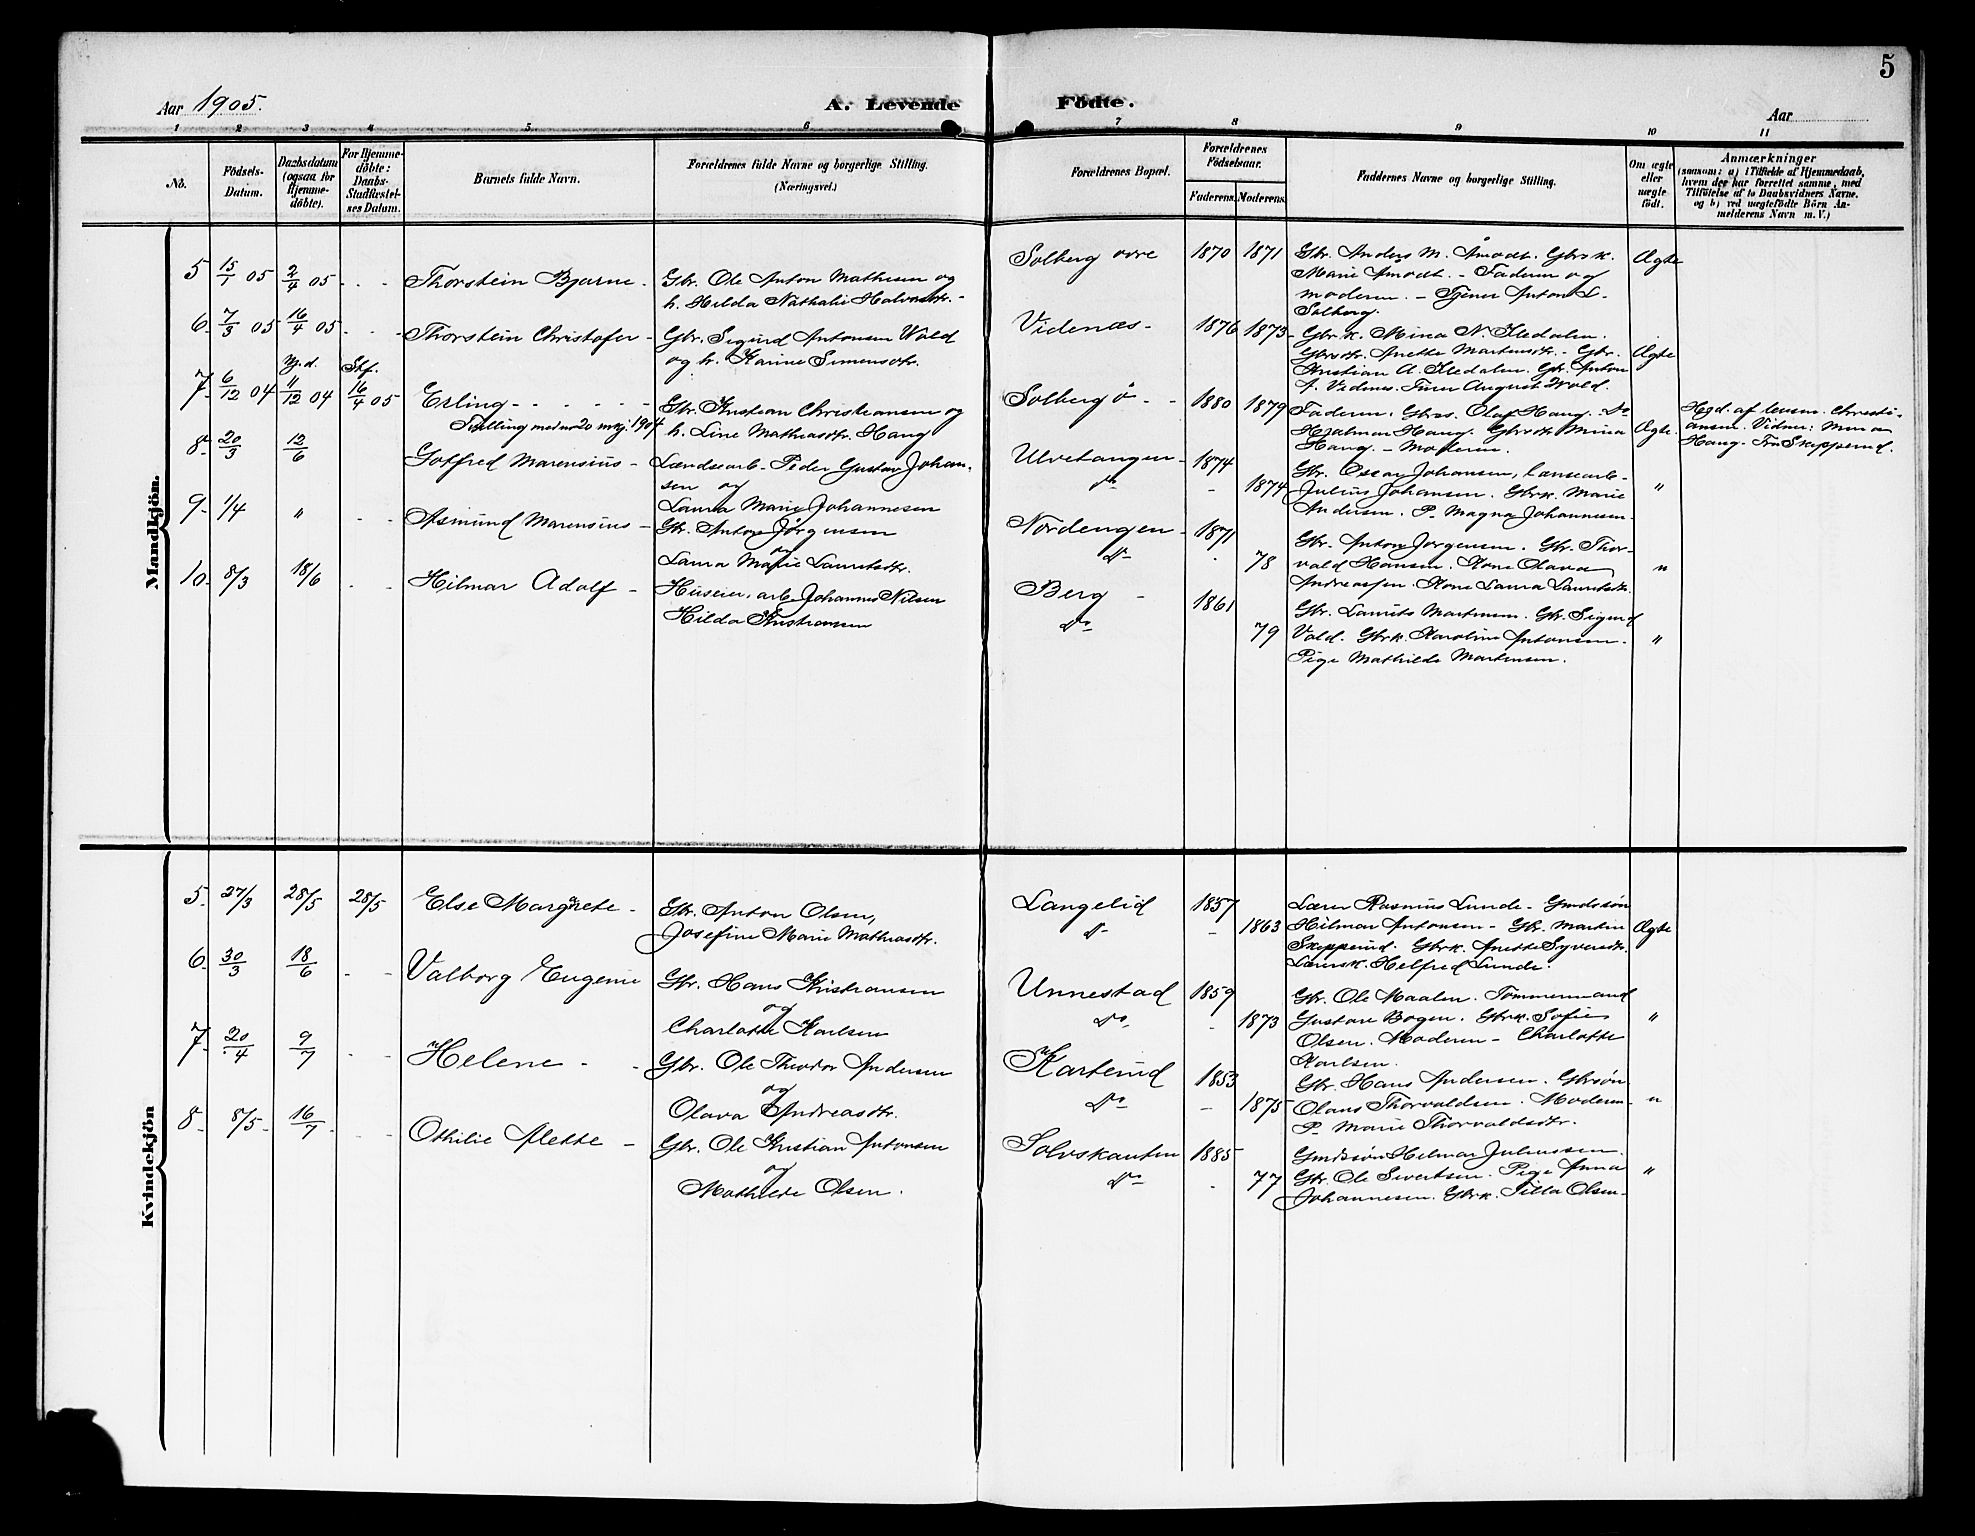 5
Aar 1905.
A. Levende Födte.
Aar
1 2 3 4 5 6 7 8 9 10 11
No.
Födsels-
Datum.
Daabsdatum
(ogsaa for
Hjemme-
döbte).
For Hjemme-
döbte:
Daabs-
Stadfæstel-
ses Datum.
Barnets fulde Navn.
Forældrenes fulde Navne og borgerlige Stilling.
(Næringsvei.)
Forældrenes Bopæl.
Forældrenes
Födselsaar.
Faderens. Moderens.
Faddernes Navne og borgerlige Stilling.
Om ægte
eller
uægte
födt.
Anmærkninger
(saasom: a) i Tilfælde af Hjemmedaab,
hvem der har forrettet samme, med
Tilföielse af to Daabsvidners Navne,
og b) ved uægtefödte Börn An-
melderens Navn m. V.)
Mandkjön.
5 15/1 05 2/4 05 - - - Thorstein Bjarne - Gbr. Ole Anton Mathisen og
h. Hilda Nathalie Halvorsdtr. -
Solberg övre 1870 1871 Gbr. Anders M. Åmodt. Gbrsk.
Marie Åmodt. - Faderen og
moderen. - Tjener Anton L.
Solberg.
Ægte
6. 7/3 05 16/4 05 - - - Thorstein Christofer - Gbr. Sigurd Antonsen Wold
og h. Karine Simensdtr.
Videnæs - 1876 1873 - Gbrk. Mina N. Iledalen.
Gbrsdtr. Anette Martinsdtr. - Gbr.
Kristian A. Iledalen. Gbr. Anton
A. Videnes. Tjener August Wold.
Ægte
7. 6/12 04 Hj.d. 11/12 04 Stf. 16/4 05 Erling - - - - -
Tvilling med no 20 mkj. 1904
Gbr. Kristian Christiansen og
h. Line Mathiasdtr. Haug
Solberg ö - - 1880 1879 Faderen. Gbrs. Olaf Haug. Do
Hjalmar Haug. Gbrsdtr. Mina
Haug. - Moderen.
Ægte.
Hjd. af lensm. Christi-
ansen. Vidner: Mina
Haug. Fru Skeppsrud.
8. 20/3 12/6 Gotfred Marensius - Landearb. Peder Gustav Johan-
sen og
Laura Marie Johannesen
Ulvetangen - 1874
Do - 1874 Gbr. Oscar Johansen, landearb.
Julius Johansen. Gbrk. Marie
Andersen. P. Magna Johannesen.
"
9. 1/4 " - - Asmund Marensius - Gbr. Anton Jörgensen
og
Laura Marie Lauritsdtr.
Nordengen - 1871
Do - 78 Gbr. Anton Jörgensen. Gbr. Thor-
vald Hansen. Kone Olava
Andreassen. Kone Laura Lauritsdtr.
"
10. 8/3 18/6 - - Hilmar Adolf - Huseier, arb. Johannes Nilsen
Hilda Kristiansen
Berg - 1861
Do 79 Gbr. Laurits Martinsen. Gbr. Sigurd
Vold. Gbrk. Karoline Antonsen.
Pige Mathilde Martinsen.
"
Kvindekjön
5. 27/3 28/5 28/5 Else Margrete - Gbr. Anton Olsen,
Josefine Marie Mathiasdtr.
Langelid 1857
Do - 1863 Lærer Rasmus Lunde - Gaardssön
Hilmar Antonsen - Gbr. Martin
Skeppsrud. Gbrk. Anette Syversdtr.
Lærersk. Helfred Lunde.
Ægte
6. 30/3 18/6 - - Valborg Eugenie Gbr. Hans Kristiansen
og
Charlotte Karlsen
Unnestad 1859
Do. - 1873 Gbr. Ole Maalen. Tömmermand
Gustav Bogen. Gbrk. Sofie
Olsen. Moderen - Charlotte
Karlsen.
"
7. 20/4 9/7 - - Helene - - Gbr. Ole Theodor Andersen
og
Olava Andreasdtr.
Karterud 1853
Do - 1875 Gbr. Hans Andersen. Gbrsön
Olaus Thorvaldsen. Moderen -
P. Marie Thorvaldsdtr.
"
8. 8/5 - 16/7 - - - Othilie Alette - Gbr. Ole Kristian Antonsen
og
Mathilde Olsen.
Solvskauten 1885
Do - 77 Gaardssön Helmar Juliussen.
Gbr. Ole Sivertsen. Pige Anna
Johannesen. Gbrk. Tilla Olsen -
"